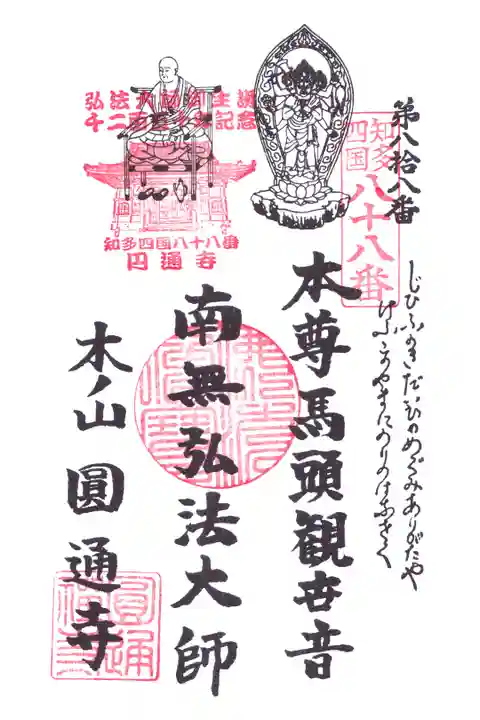 第八拾八番
知多
四国
八十八番
じひふかきだいひのめぐみありがたや
本尊馬頭観世音
南無弘法大師
木ノ山 圓通寺
弘法大師御生誕
千二百五十年記念
知多四国八十八番
円通寺
圓通